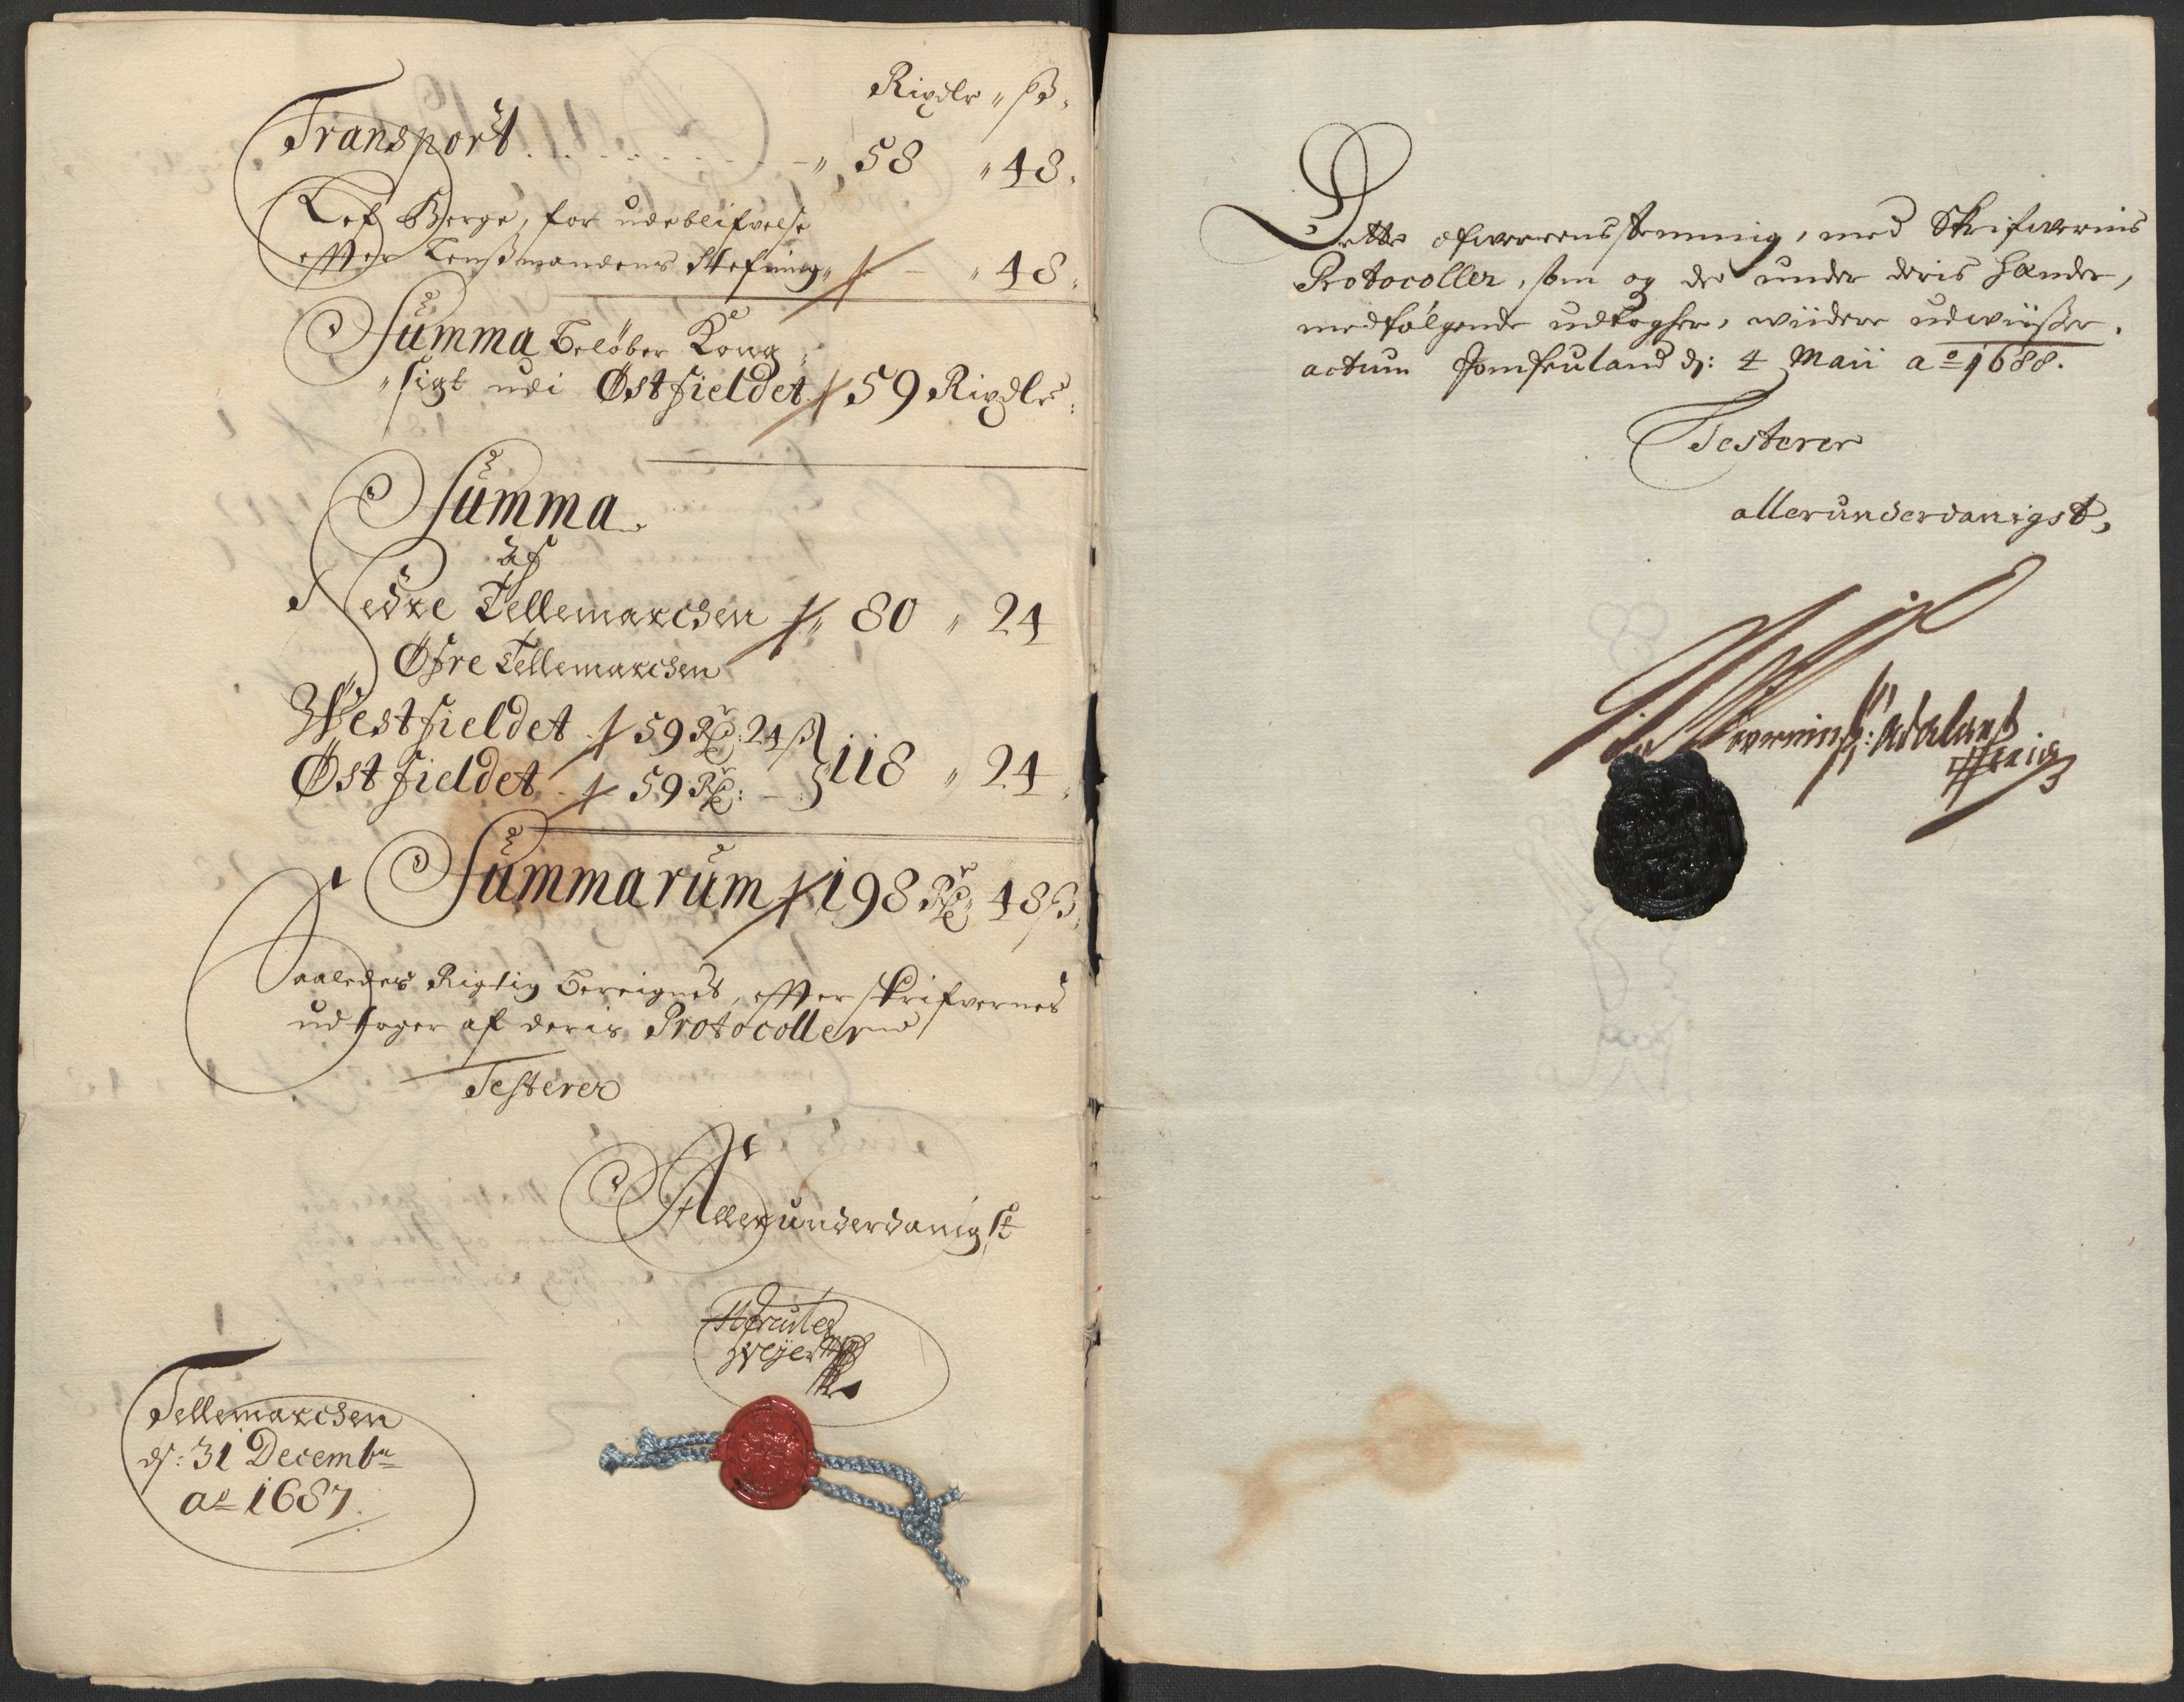 Rixdlr „ ß.
Transport . . . . . . . „ 58 „ 48.
Lef Berge, for udeblifvelse
effter Lensmandens Stefning „ — „ 48.
Summa beløber Kong
„ sigt udi Østfieldet 59 Rixdlr:
Summa.
Af
Nedre Tellemarchen „ 80 „ 24
Øfre Tellemarchen
Westfieldet 59 Rdr: 24 ß
118 „ 24
Østfieldet 59 Rdr: —
Summarum 198 Rdr 48 ß.
Saaledes Rigtig bereignet, effter skrifvernes
udtoger af deris Protocoller
Testerer
Allerunderdanigst
Weyer
Tellemarchen
d: 31 Decembr
ao 1687.
Dette ofwereensstemmig, med Skrifwernis
Protocoller, som og de under deris hænder,
medfølgende udtogher, wiidere udwiißer.
actum Jomfruland d: 4 Maii ao 1688.
Testerer
allerunderdanigst,
Adaland